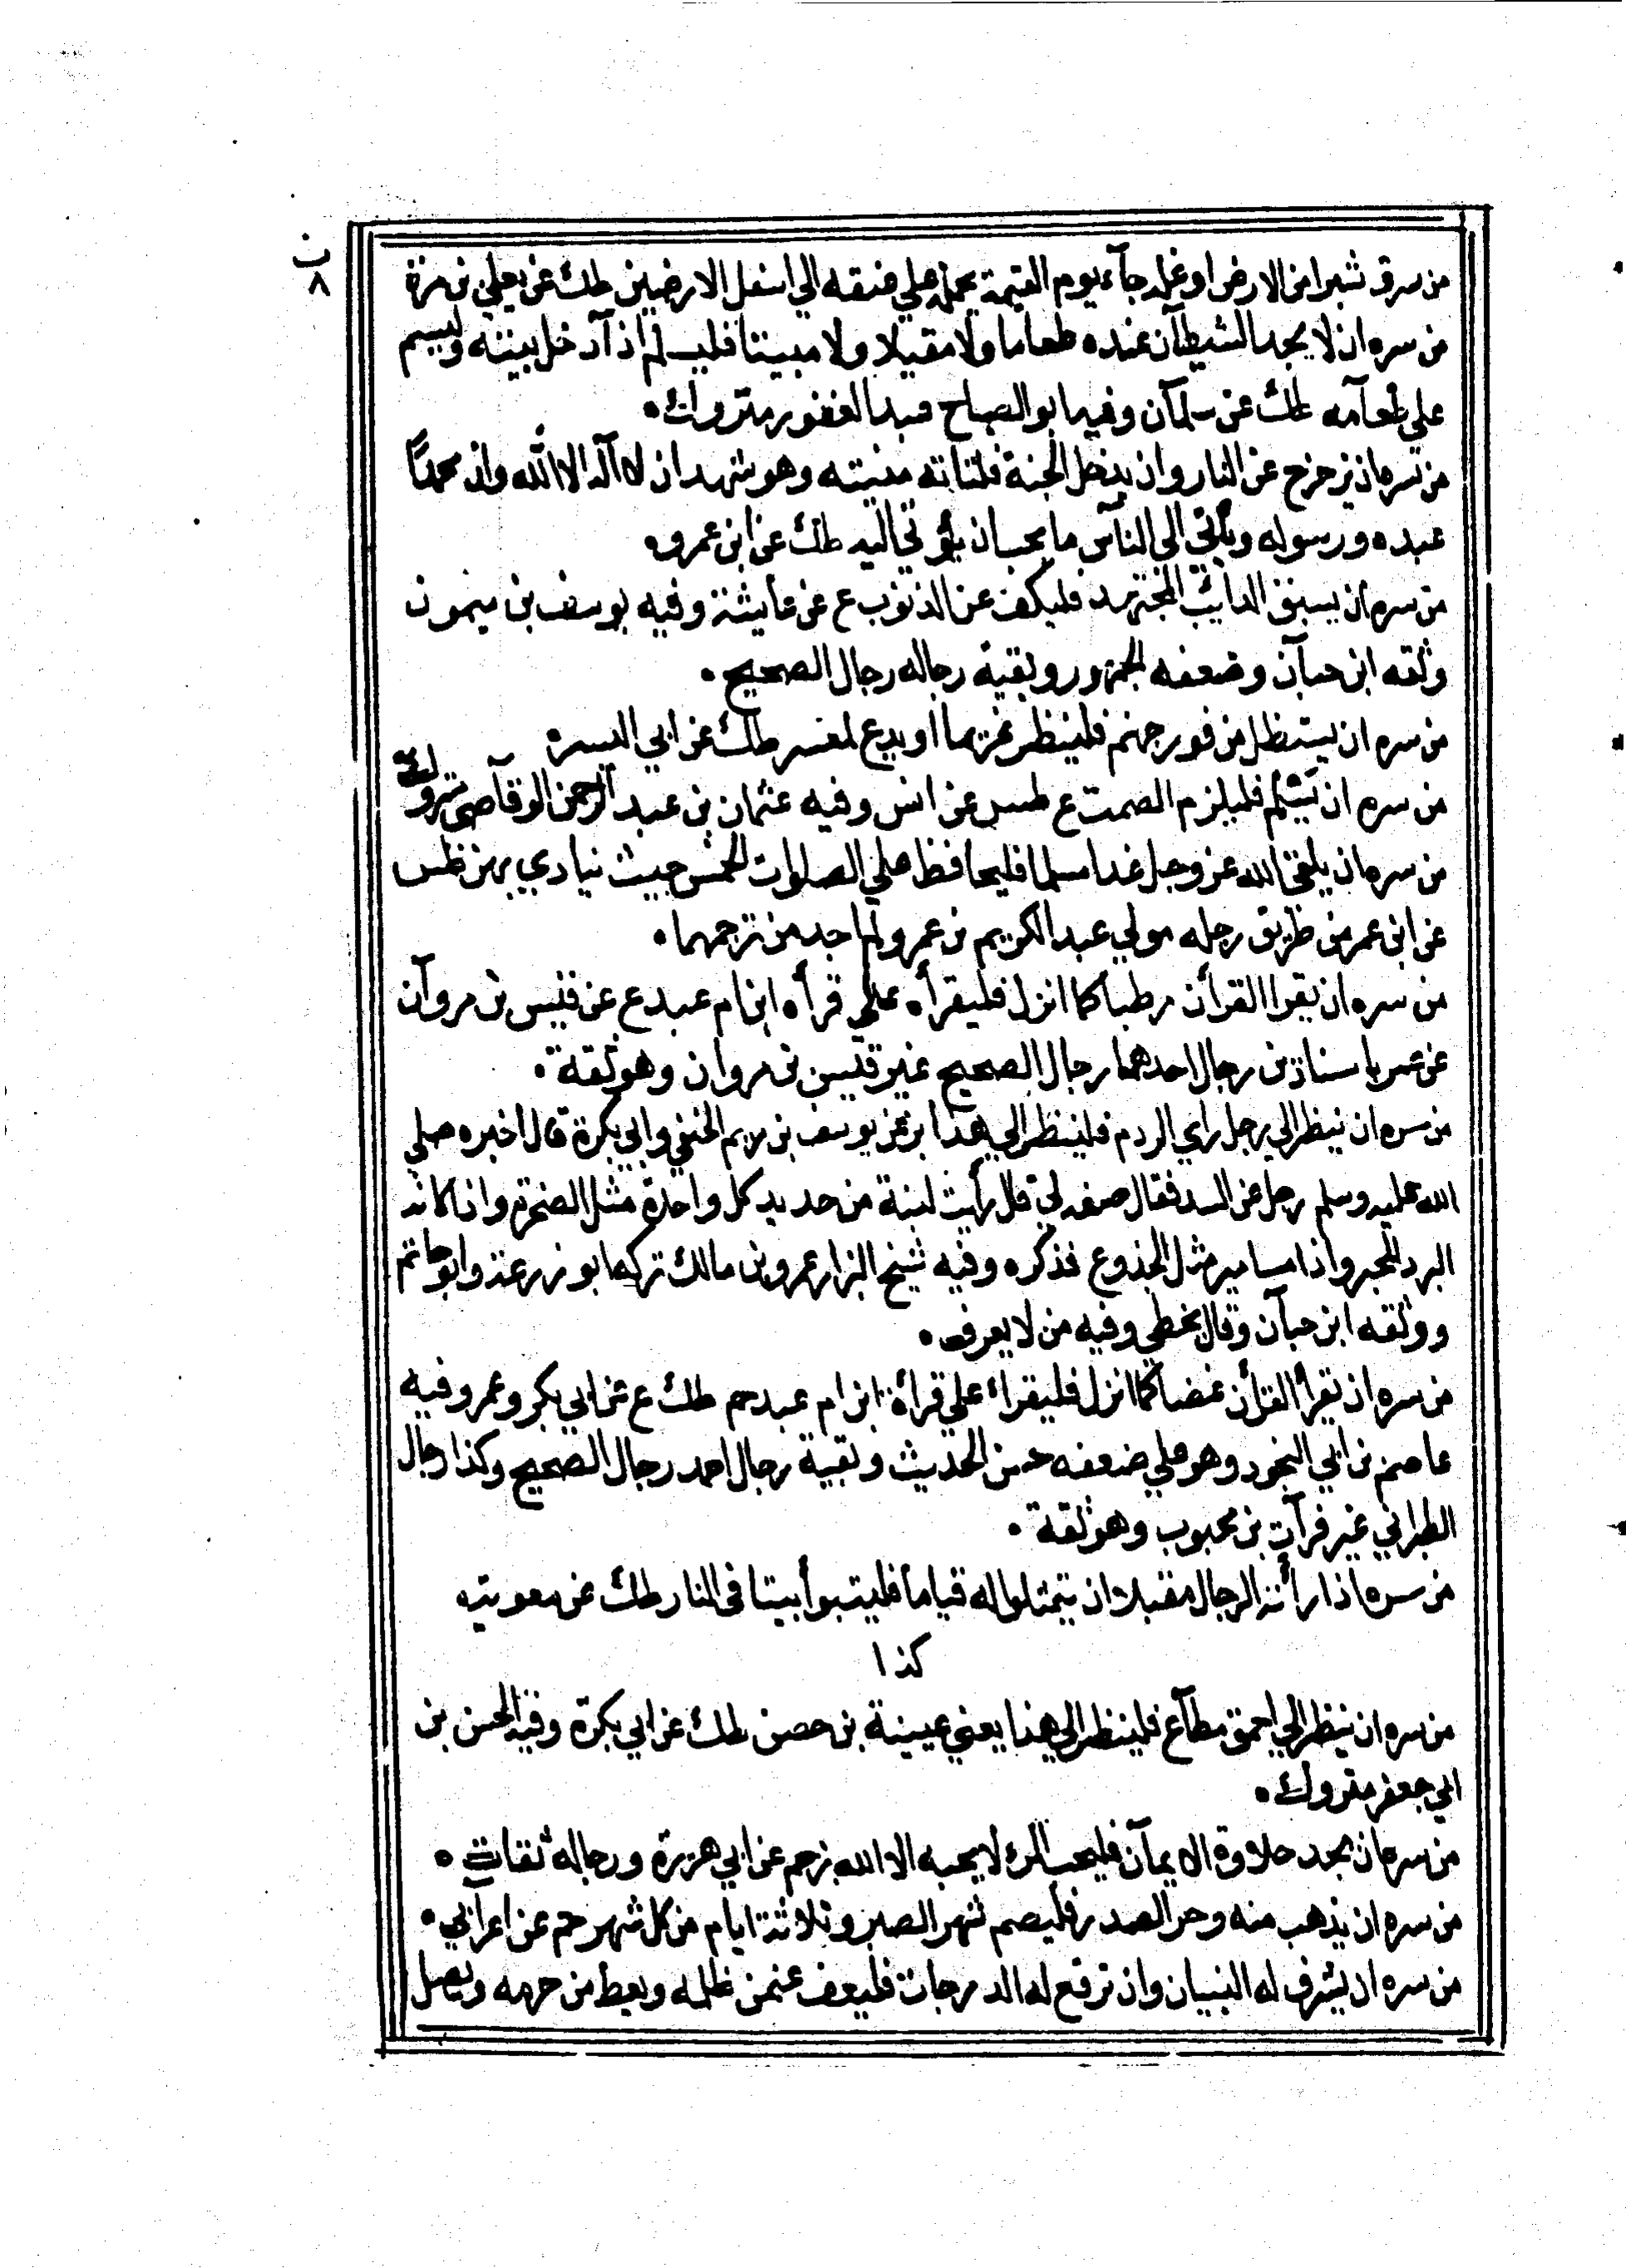 ب
٨
من سرق شبرا من الارض او غله جآء يوم القيمة يحمله علي عنقه الي اسفل الارضين طك عن يعلي بن مرة
من سره ان لا يجد الشيطآن عنده طعاما ولا مقيلا ولا مبيتا فليسلم اذآ دخل بيته وليسم
علي طعآمه طك عن سلمآن وفيه ابو الصباح عبد الغفور متروك.
من سره ان يزحزح عن النار وان يدخل الجنة فلتاته منيته وهو يشهد ان لا آله الا الله وان محمدًا
عبده ورسوله ويأتي الي النآس ما يحب ان يؤتي اليه طك عن ابن عمرو.
من سره ان يسبق الدايب المجتهد فليكف عن الذنوب ع عن عايشة وفيه يوسف بن ميمون
وثقه ابن حبآن وضعفه الجمهور وبقية رجاله رجال الصحيح.
من سره ان يستظل من فور جهنم فلينظر غريما او يدع لمعسر طك عن ابي اليسره
من سره ان يسلم فليلزم الصمت ع طس عن انس وفيه عثمان بن عبد الرحمن الوقآصي متروك
من سره ان يلقي الله عز وجل غدا مسلما فليحافظ علي الصلوات الخمس حيث ينادي بهن طس
عن ابن عمر من طريق رجله مولي عبد الكريم بن عمرو ولم اجد من ترجمهما.
من سره ان يقرا القرأن رطبا كما انزل فليقرأه علي قرأه ابن ام عبد ع عن قيس بن مروآن
عن عمر باسنادين رجال احدهما رجال الصحيح غير قيس بن مروان وهو ثقة.
من سره ان ينظر الي رجل راي الردم فلينظر الي هذا بز عن يوسف بن مريم الحنفي وابي بكرة قال اخبره صلي
الله عليه وسلم رجل عن السد فقال صفه لي قال رأيت لبنة من حديد كل واحدة مثل الصخرة واذا كانه
البرد المحبر واذا مسامير مثل الجذوع فذكره وفيه شيخ البزار عمرو بن مالك تركه ابو زرعة وابو حاتم
ووثقه ابن حبآن وقال يخطي وفيه من لا يعرف.
من سره ان يقرأ القرأن غضا كما انزل فليقراء علي قرأة ابن ام عبد حم طك ع عن ابي بكر وعمر وفيه
عاصم بن ابي النجود وهو علي ضعفه حسن الحديث وبقية رجال احمد رجال الصحيح وكذا رجال
الطبراني غير فرآت بن محبوب وهو ثقة.
من سره اذا رأته الرجال مقبلا ان يتمثلوا له قياما فليتبوأ بيتا في النار طك عن معوية
كذا
من سره ان ينظر الي احمق مطآع فلينظر الي هذا يعني عيينة بن حصن طك عن ابي بكرة وفيه الحسن بن
ابي جعفر متروك.
من سره ان يجد حلاوة الايمآن فليحب المرء لا يحبه الا الله بز حم عن ابي هريرة ورجاله ثقات.
من سره ان يذهب منه وحر الصدر فليصم شهر الصبر وثلاثة ايام من كل شهر حم عن اعرآبي.
من سره ان يشرف له البنيان وان ترفع له الدرجات فليعف عمن ظلمه ويعط من حرمه ويصل